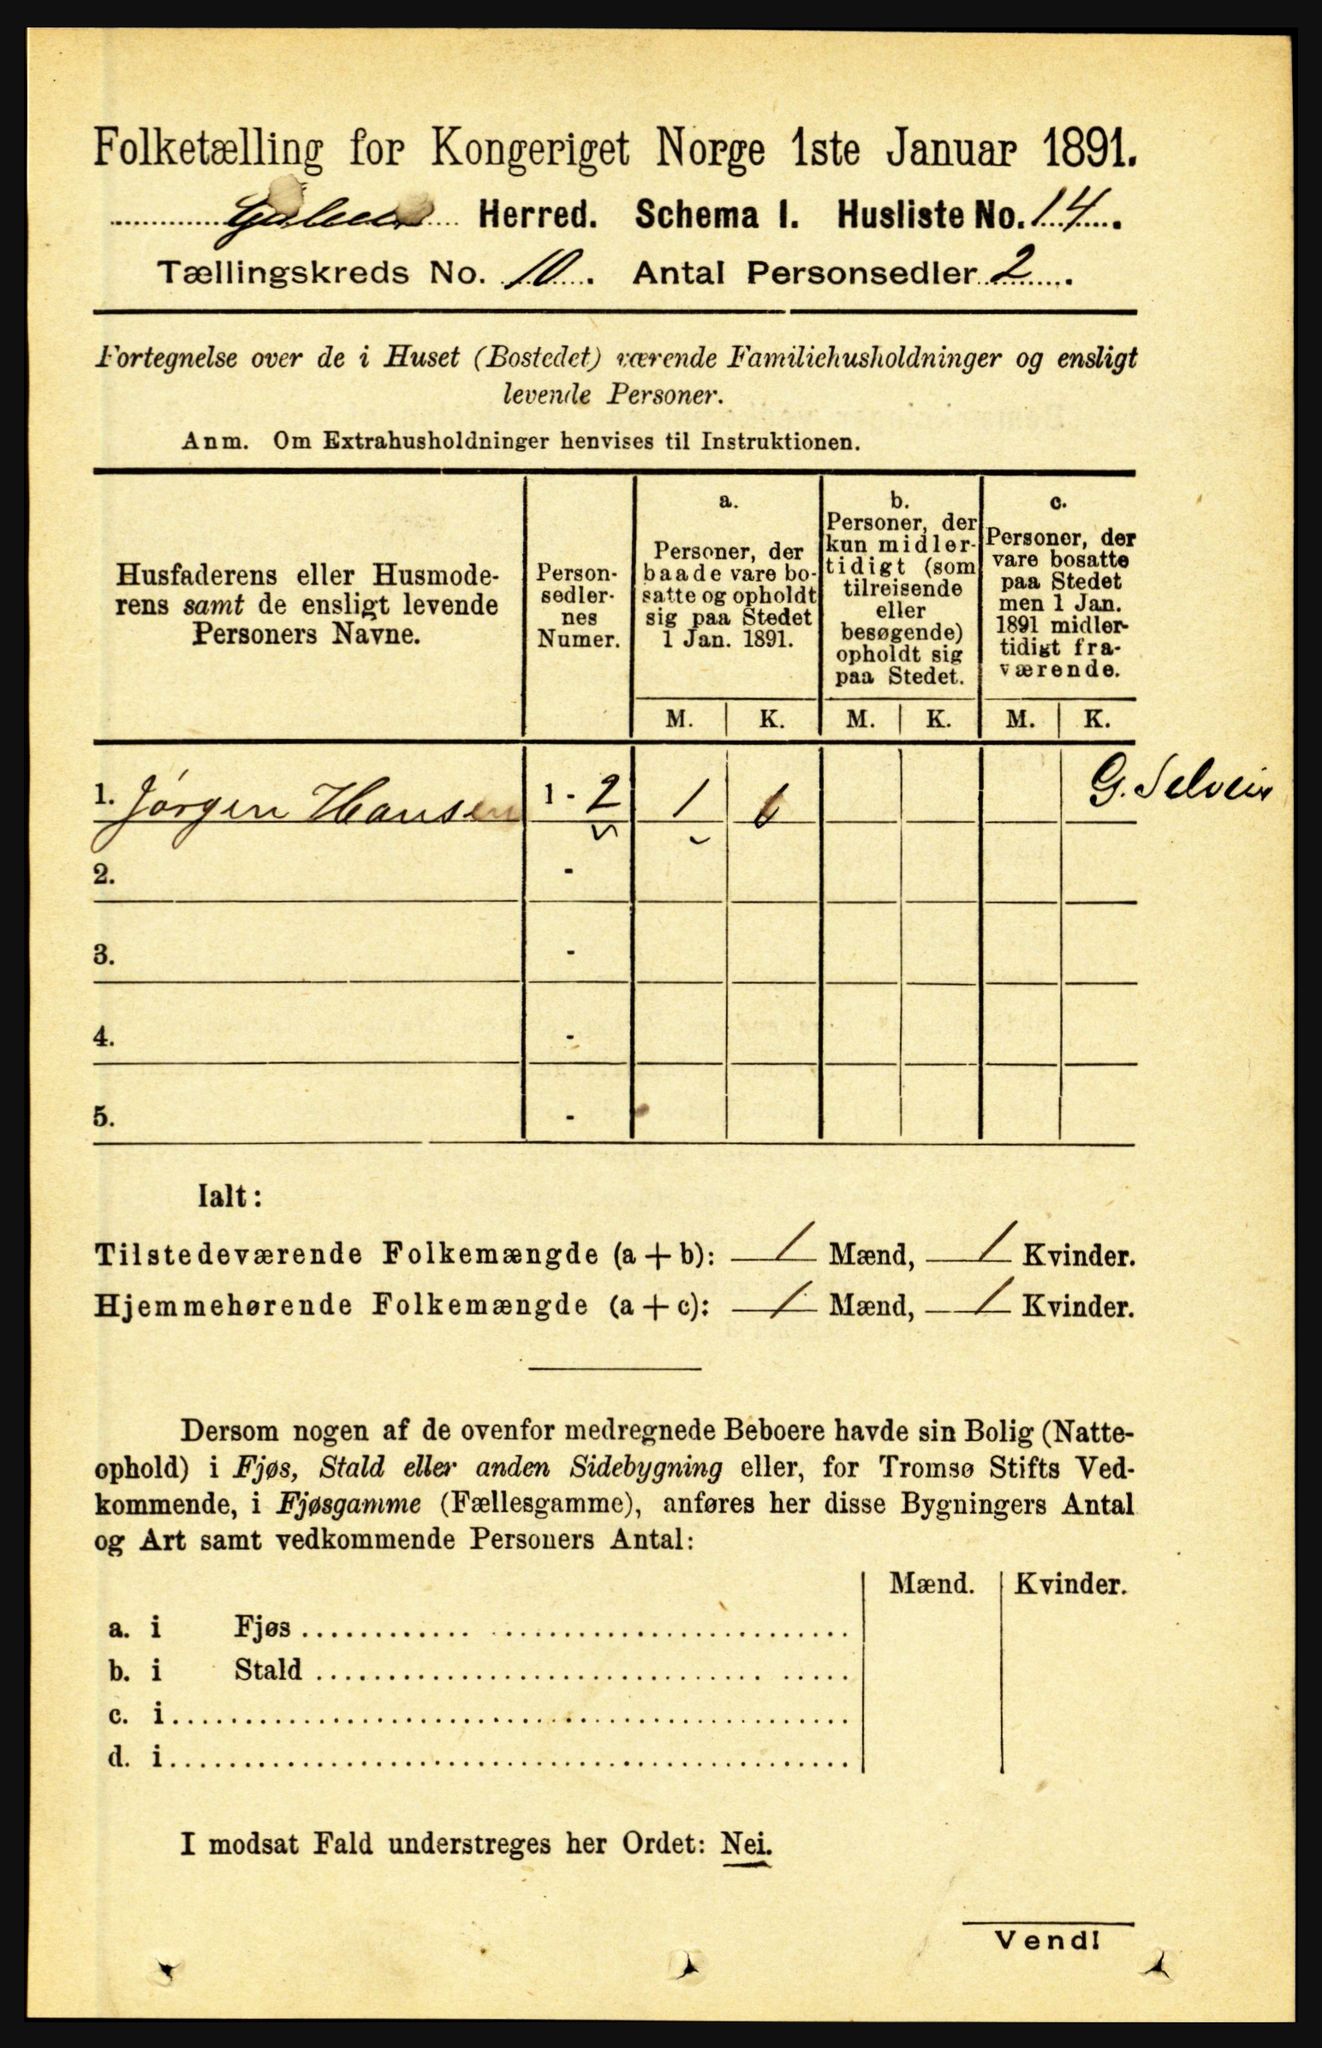 Folketælling for Kongeriget Norge 1ste Januar 1891.
Herred. Schema I. Husliste No. 14.
Tællingskreds No. 10. Antal Personsedler 2.
Fortegnelse over de i Huset (Bostedet) værende Familiehusholdninger og ensligt
levende Personer.
Anm. Om Extrahusholdninger henvises til Instruktionen.
Husfaderens eller Husmode-
rens samt de ensligt levende
Personers Navne.
Person-
sedler-
nes
Numer.
a.
Personer, der
baade vare bo-
satte og opholdt
sig paa Stedet
1 Jan. 1891.
b.
Personer, der
kun midler-
tidigt (som
tilreisende
eller
besøgende)
opholdt sig
paa Stedet.
c.
Personer, der
vare bosatte
paa Stedet
men 1 Jan.
1891 midler-
tidigt fra-
værende.
M. K. M. K. M. K.
1. Jørgen Hansen 1 - 2 1 1 G. Selveier
2. -
3. -
4. -
5. -
Ialt:
Tilstedeværende Folkemængde (a + b): 1 Mænd, 1 Kvinder.
Hjemmehørende Folkemængde (a + c): 1 Mænd, 1 Kvinder.
Dersom nogen af de ovenfor medregnede Beboere havde sin Bolig (Natte-
ophold) i Fjøs, Stald eller anden Sidebygning eller, for Tromsø Stifts Ved-
kommende, i Fjøsgamme (Fællesgamme), anføres her disse Bygningers Antal
og Art samt vedkommende Personers Antal:
Mænd. Kvinder.
a. i Fjøs
b. i Stald
c. i
d. i
I modsat Fald understreges her Ordet: Nei.
Vend!